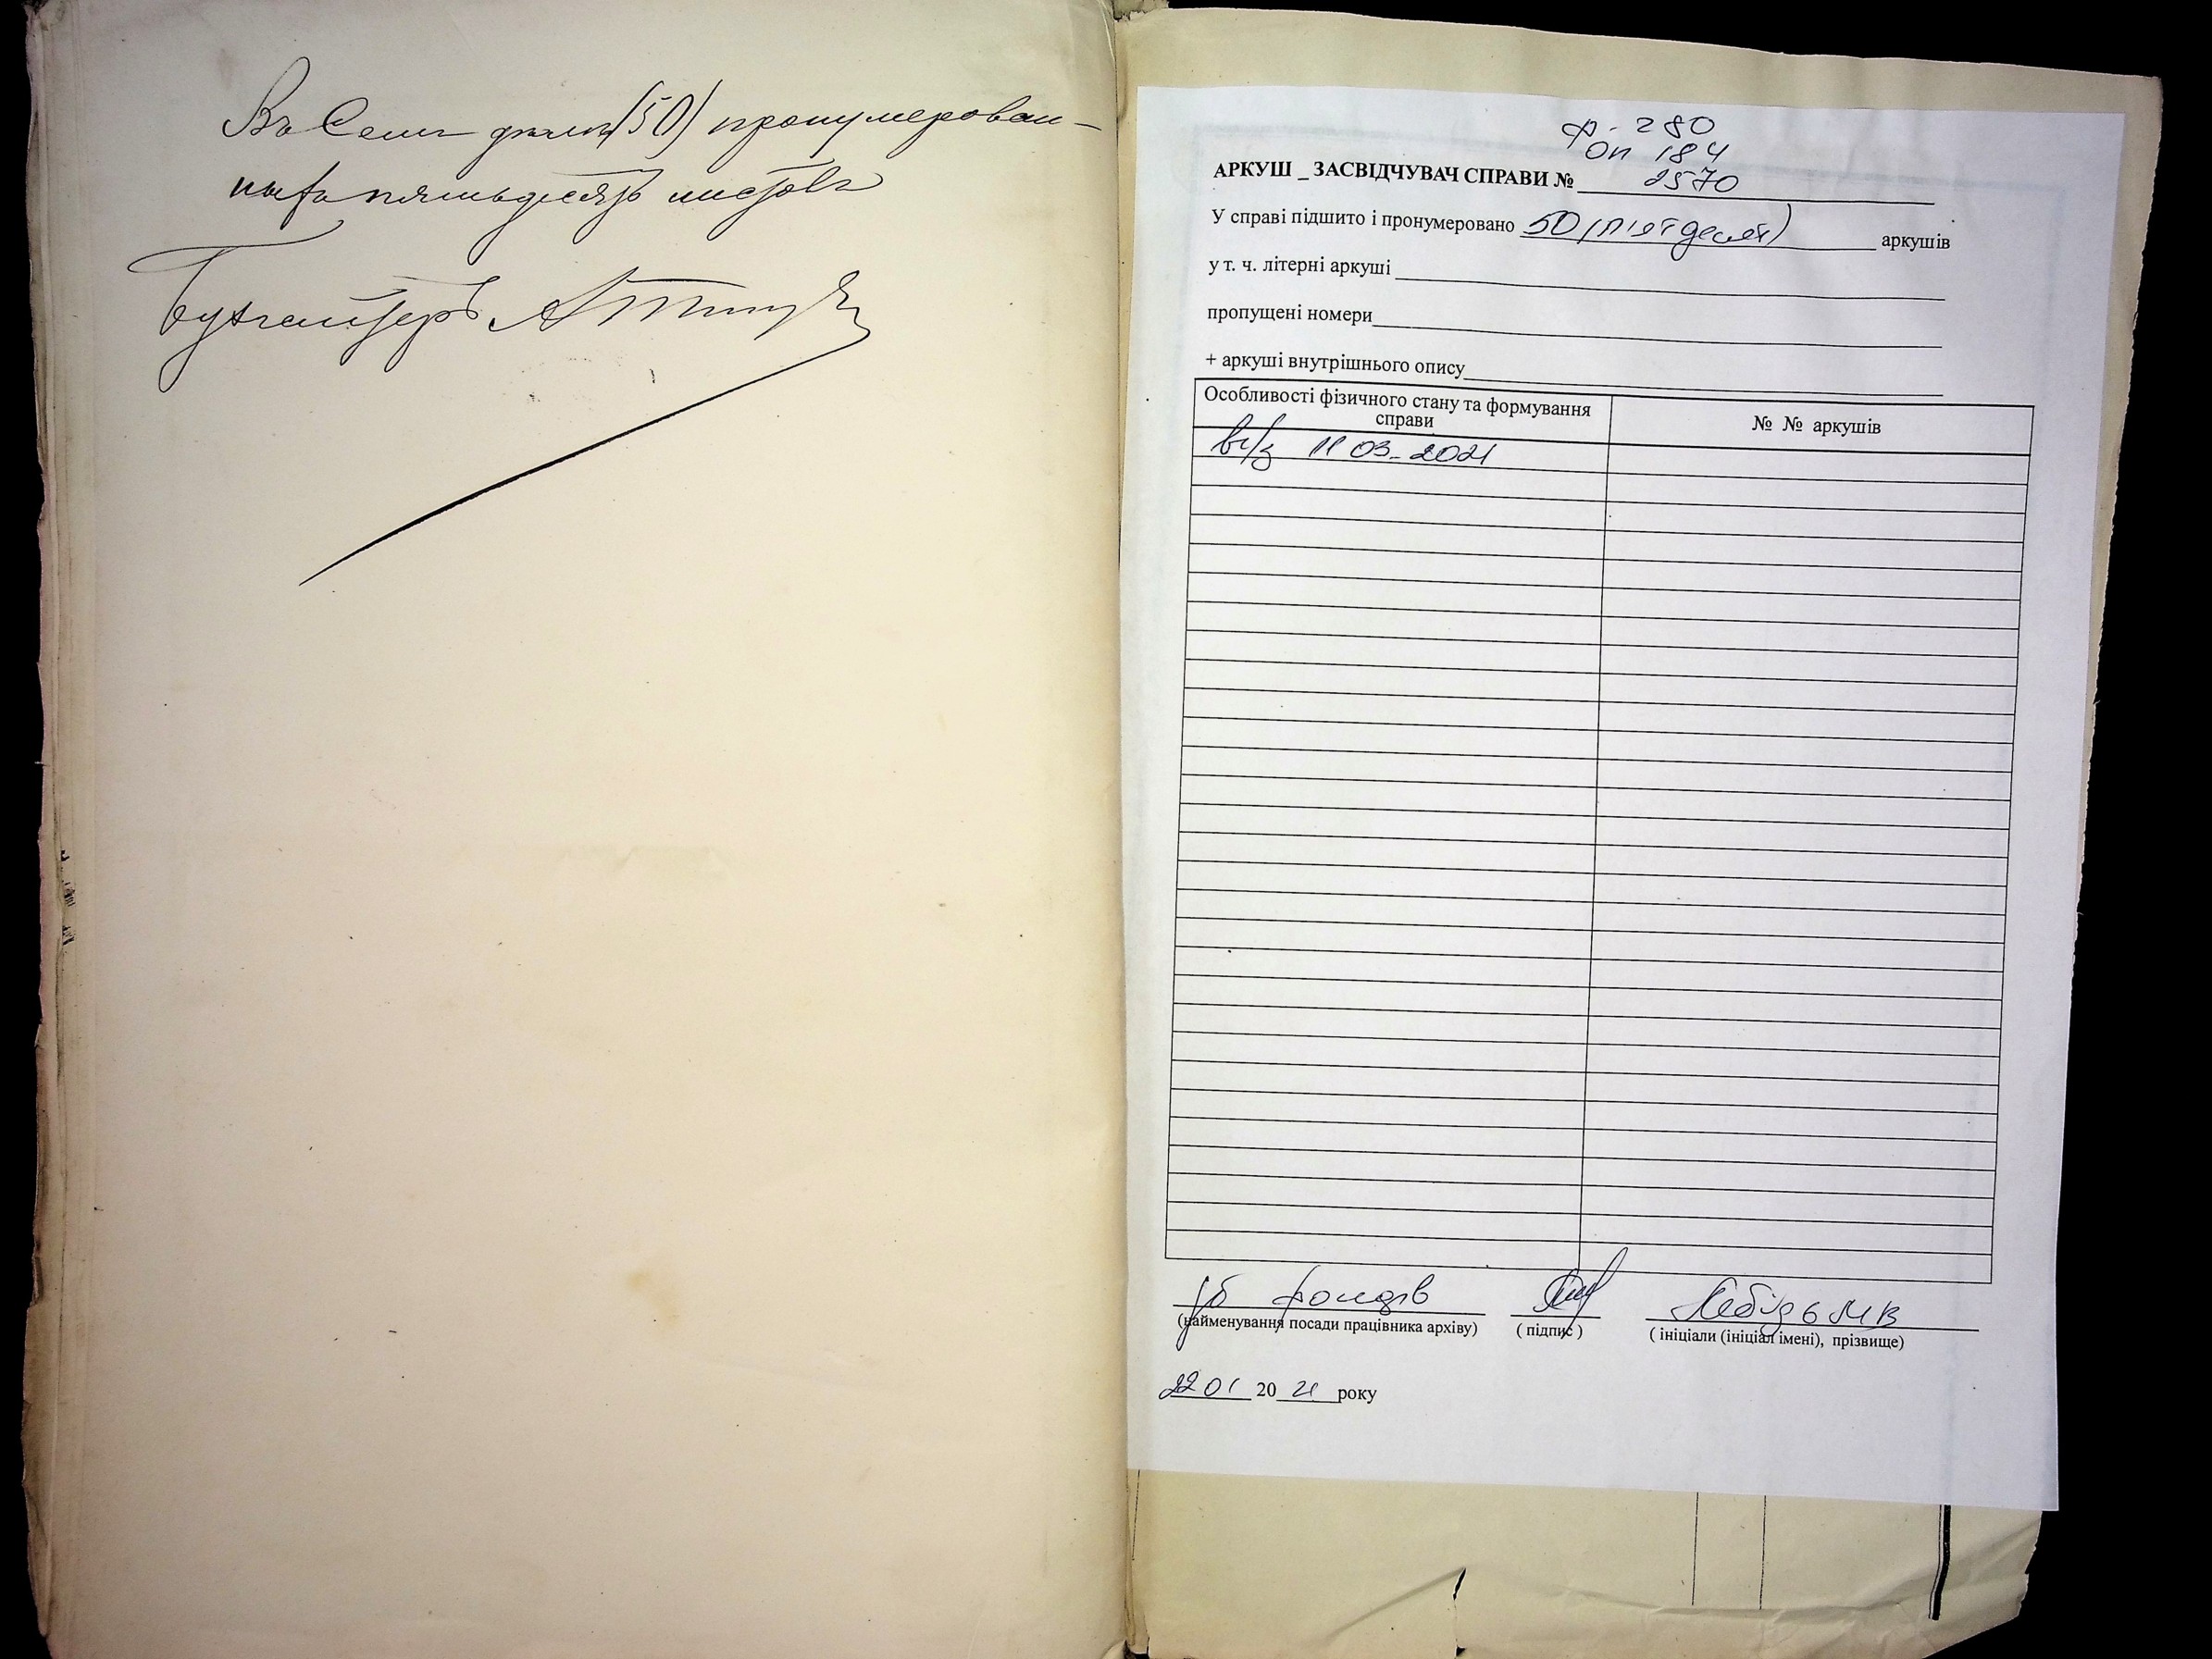 Въ Семъ дѣлѣ (50) пронумерован-
ныхъ пятьдесятъ листовъ
Бухгалтеръ
Ф. 280
оп 184
АРКУШ _ ЗАСВІДЧУВАЧ СПРАВИ № 2570
У справі підшито і пронумеровано 50 (п'ятдесят) аркушів
у т. ч. літерні аркуші
пропущені номери
+ аркуші внутрішнього опису
Особливості фізичного стану та формування
справи
№ № аркушів
11 03-2021
фондів
Лебідь МВ
(найменування посади працівника архіву) ( підпис ) ( ініціали (ініціал імені), прізвище)
22 01 20 21 року